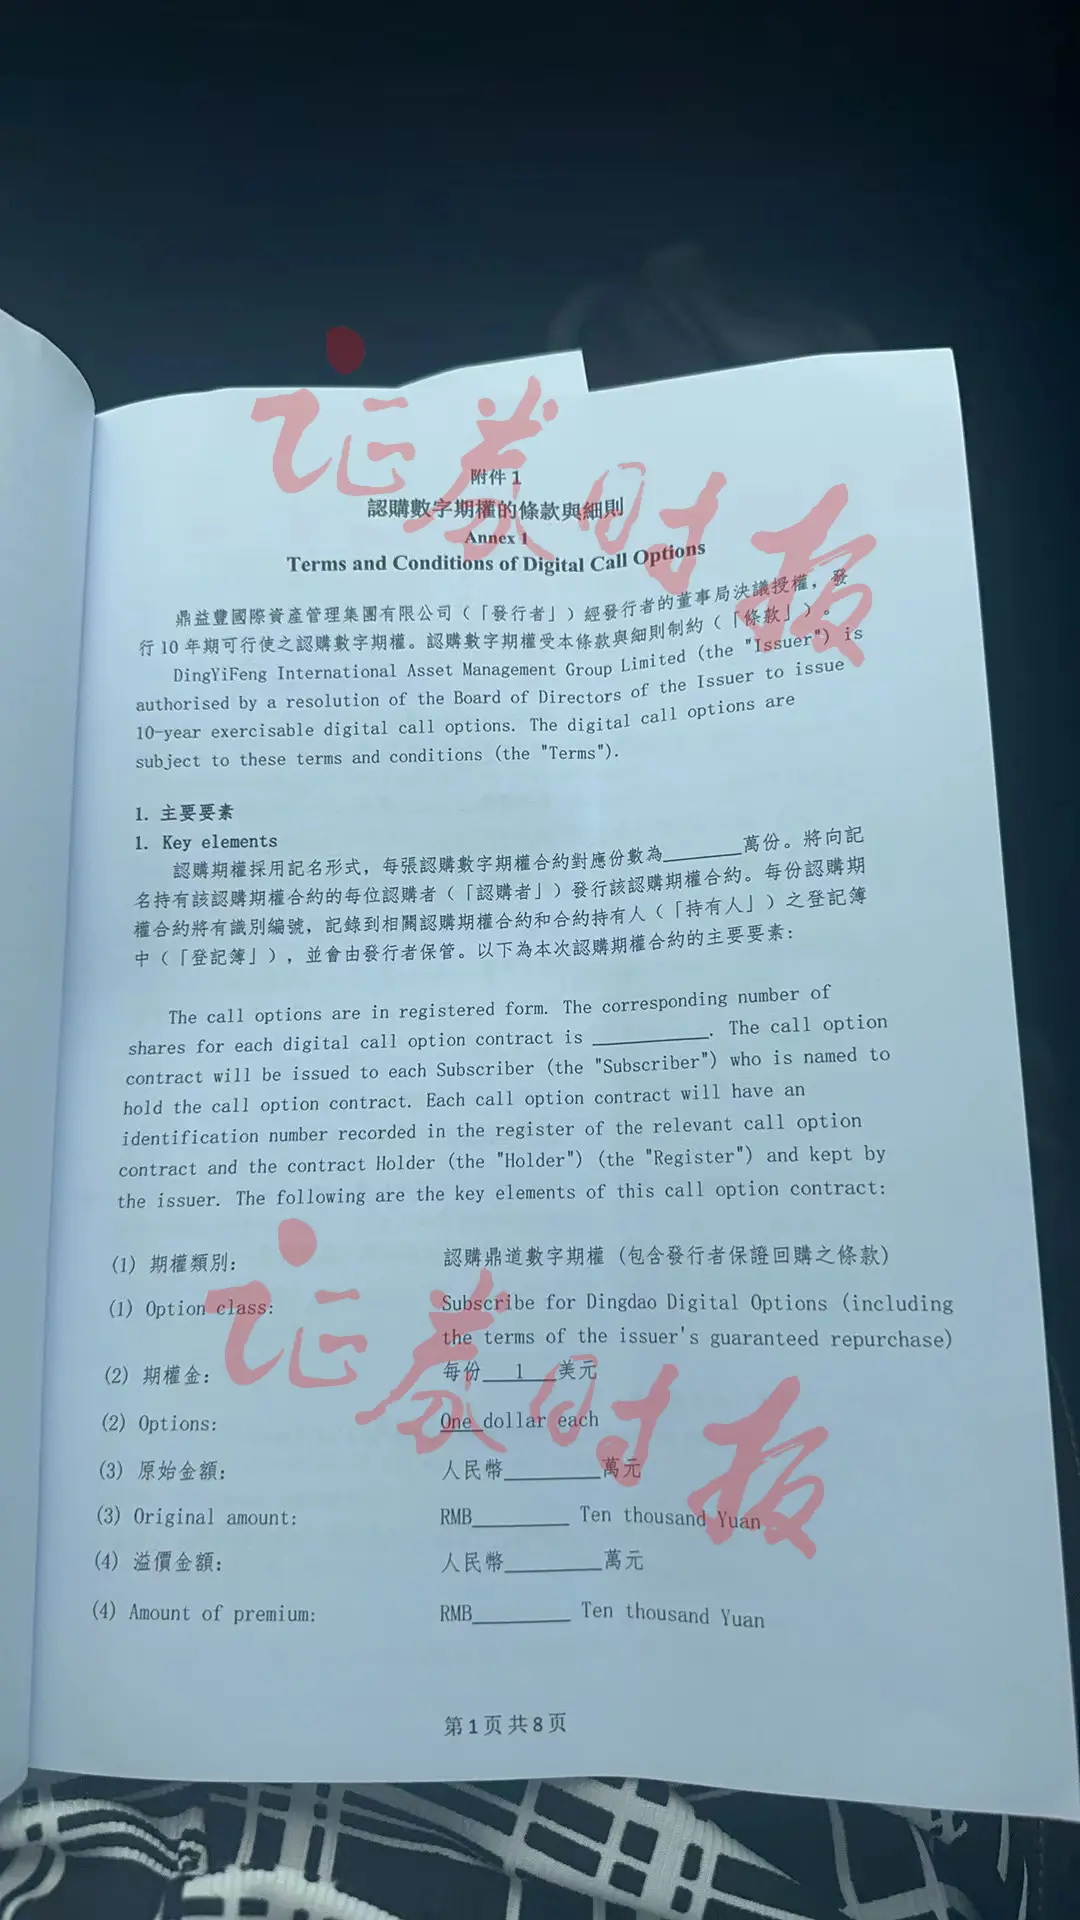 证券时报
附件 1
認購數字期權的條款與細則
Annex 1
Terms and Conditions of Digital Call Options
鼎益豐國際資產管理集團有限公司（「發行者」）經發行者的董事局決議授權，發
行 10 年期可行使之認購數字期權。認購數字期權受本條款與細則制約（「條款」）。
DingYiFeng International Asset Management Group Limited (the "Issuer") is
authorised by a resolution of the Board of Directors of the Issuer to issue
10-year exercisable digital call options. The digital call options are
subject to these terms and conditions (the "Terms").
1. 主要要素
1. Key elements
認購期權採用記名形式，每張認購數字期權合約對應份數為________萬份。將向記
名持有該認購期權合約的每位認購者（「認購者」）發行該認購期權合約。每份認購期
權合約將有識別編號，記錄到相關認購期權合約和合約持有人（「持有人」）之登記簿
中（「登記簿」），並會由發行者保管。以下為本次認購期權合約的主要要素：
The call options are in registered form. The corresponding number of
shares for each digital call option contract is __________. The call option
contract will be issued to each Subscriber (the "Subscriber") who is named to
hold the call option contract. Each call option contract will have an
identification number recorded in the register of the relevant call option
contract and the contract Holder (the "Holder") (the "Register") and kept by
the issuer. The following are the key elements of this call option contract:
(1) 期權類別： 認購鼎道數字期權（包含發行者保證回購之條款）
(1) Option class: Subscribe for Dingdao Digital Options (including
the terms of the issuer's guaranteed repurchase)
(2) 期權金： 每份___1___美元
(2) Options: One dollar each
(3) 原始金額： 人民幣_________萬元
(3) Original amount: RMB_________ Ten thousand Yuan
(4) 溢價金額： 人民幣_________萬元
(4) Amount of premium: RMB_________ Ten thousand Yuan
证券时报
第 1 页 共 8 页